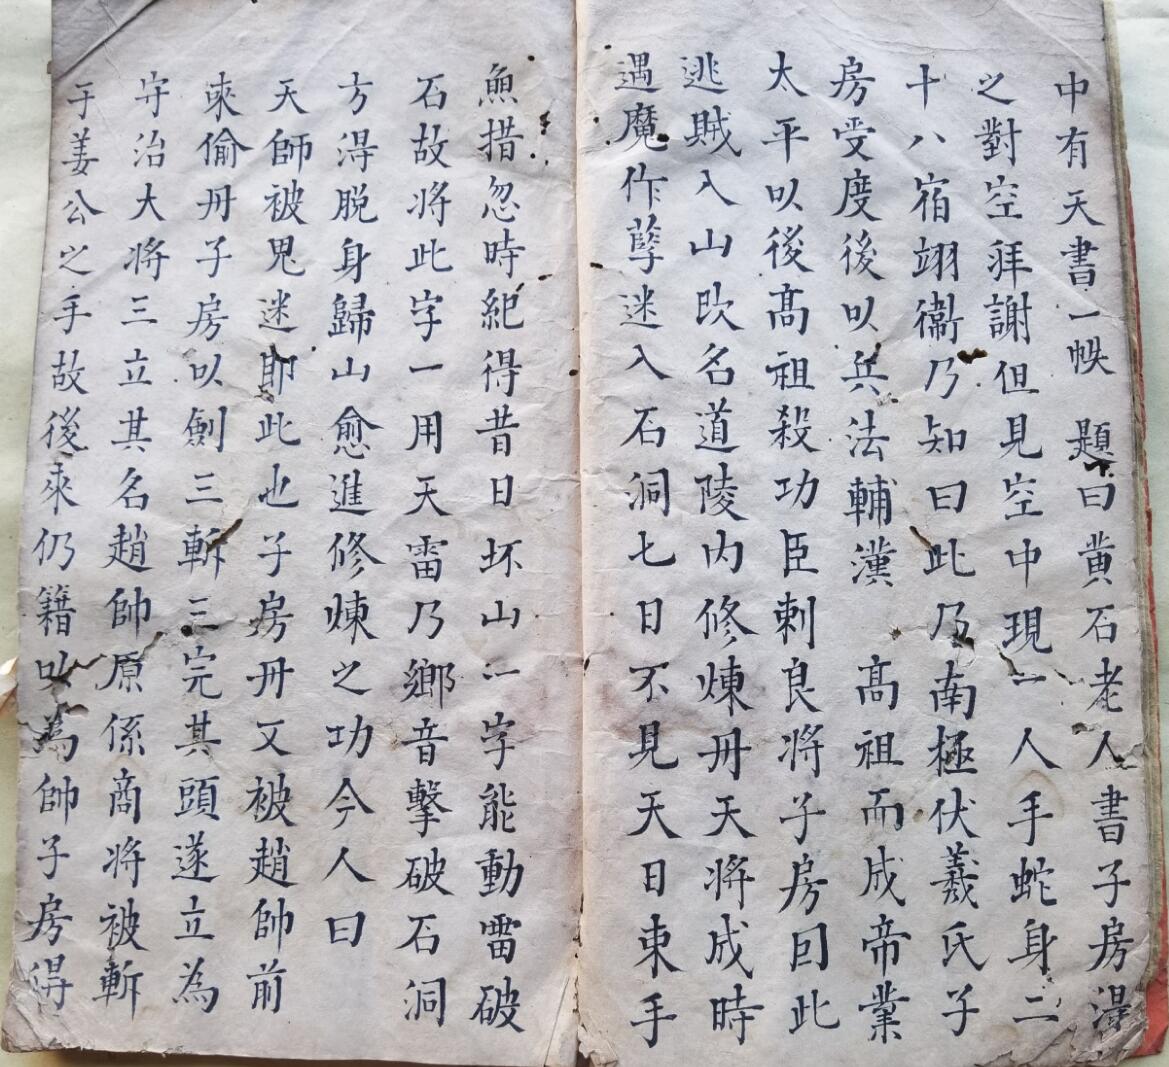 中有天書一帙 題曰黄石老人書子房淂
之對空拜謝但見空中現一人手蛇身二
十八宿翊衛乃知曰此乃南極伏羲氏子
房受度後以兵法輔漢 髙祖而成帝業
太平以後髙祖殺功臣剌良将子房因此
逃賊入山改名道陵内修煉丹天將成時
遇魔作孽迷入石洞七日不見天日束手
無措忽時紀得昔日坯山一字能動雷破
石故将此字一用天雷乃鄉音擊破石洞
方淂脱身歸山愈進修煉之功今人曰
天師被鬼迷即此也子房丹又被趙帥前
來偷丹子房以劍三斬三完其頭遂立為
守治大将三立其名趙帥原係商将被斬
于姜公之手故後来仍籍以為帥子房得